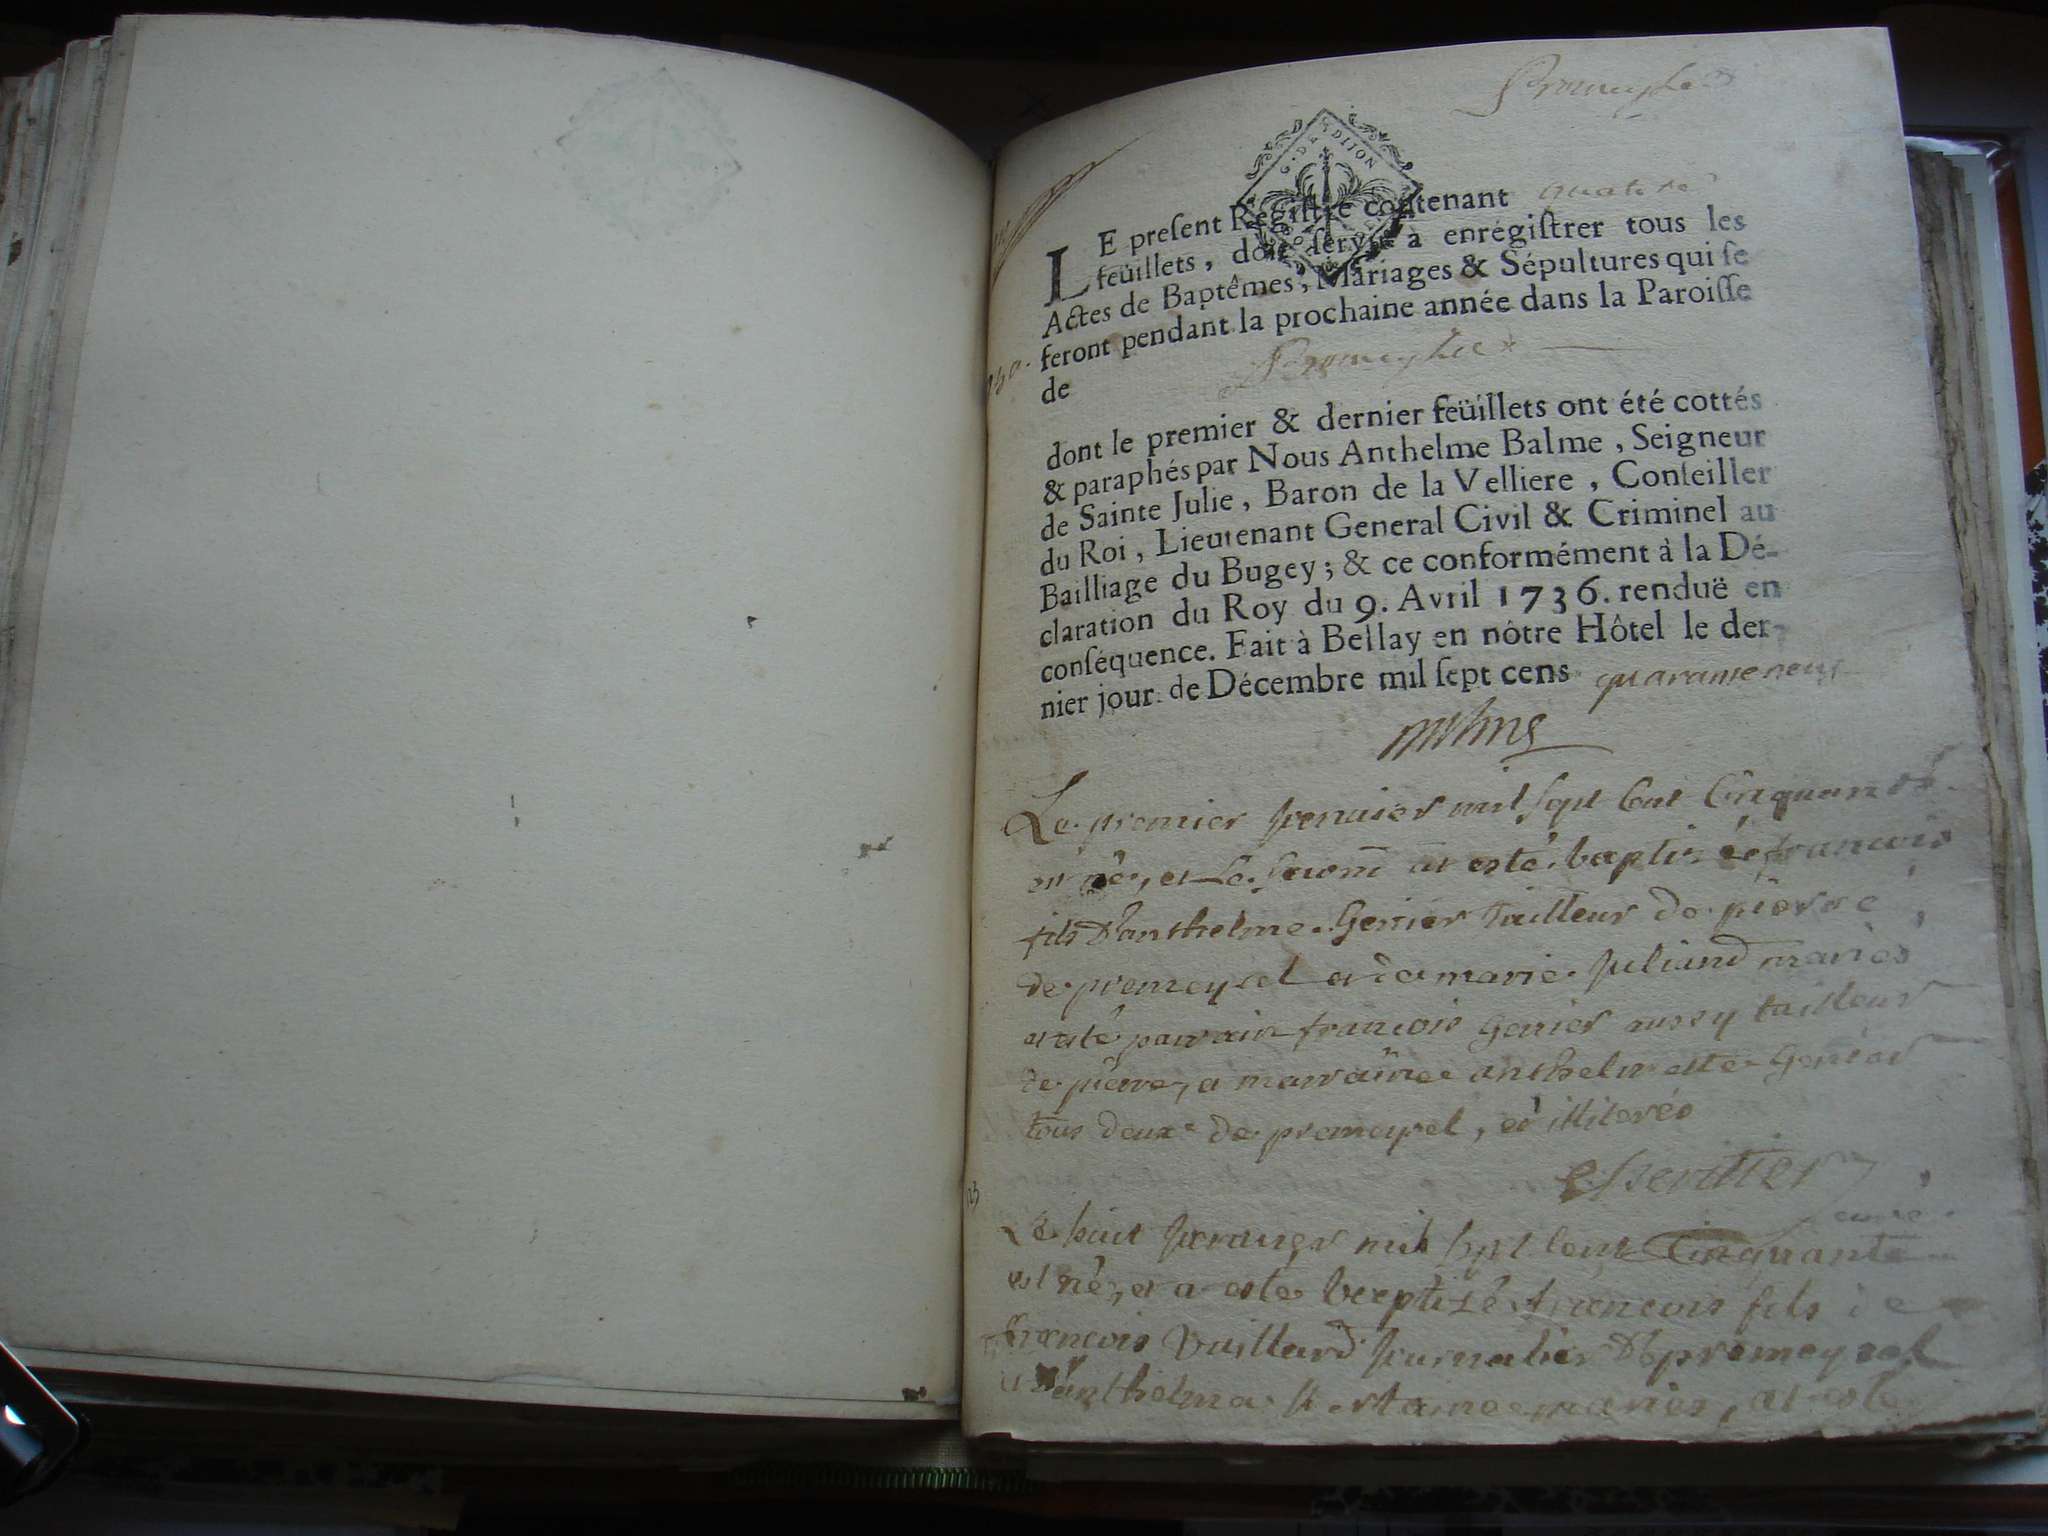 G. DE DIJON
LE preſent Regiſtre contenant
feüillets, doit ſervir à enrégiſtrer tous les
Actes de Baptêmes, Mariages & Sépultures qui ſe
feront pendant la prochaine année dans la Paroiſſe
de
dont le premier & dernier feüillets ont été cottés
& paraphés par Nous Anthelme Balme, Seigneur
de Sainte Julie, Baron de la Velliere, Conſeiller
du Roi, Lieutenant General Civil & Criminel au
Bailliage du Bugey; & ce conformément à la Dé-
claration du Roy du 9. Avril 1736. renduë en
conſéquence. Fait à Bellay en nôtre Hôtel le der-
nier jour de Décembre mil ſept cens quarante neuf
Le premier janvier mil sept cent cinquante
est né, et le a esté baptisé francois
fils d'anthelme Genier tailleur de pierre
de premeysel et de marie juliand mariés
a esté parrain francois genier aussy tailleur
de pierre, et marraine anthelmette Genier
tous deux de premeysel, et illiterés
Le huit janvier mil sept cent Cinquante
est né, et a esté baptisé francois fils de
francois Vuillard journalier de premeysel
et d'anthelma mariés, at esté